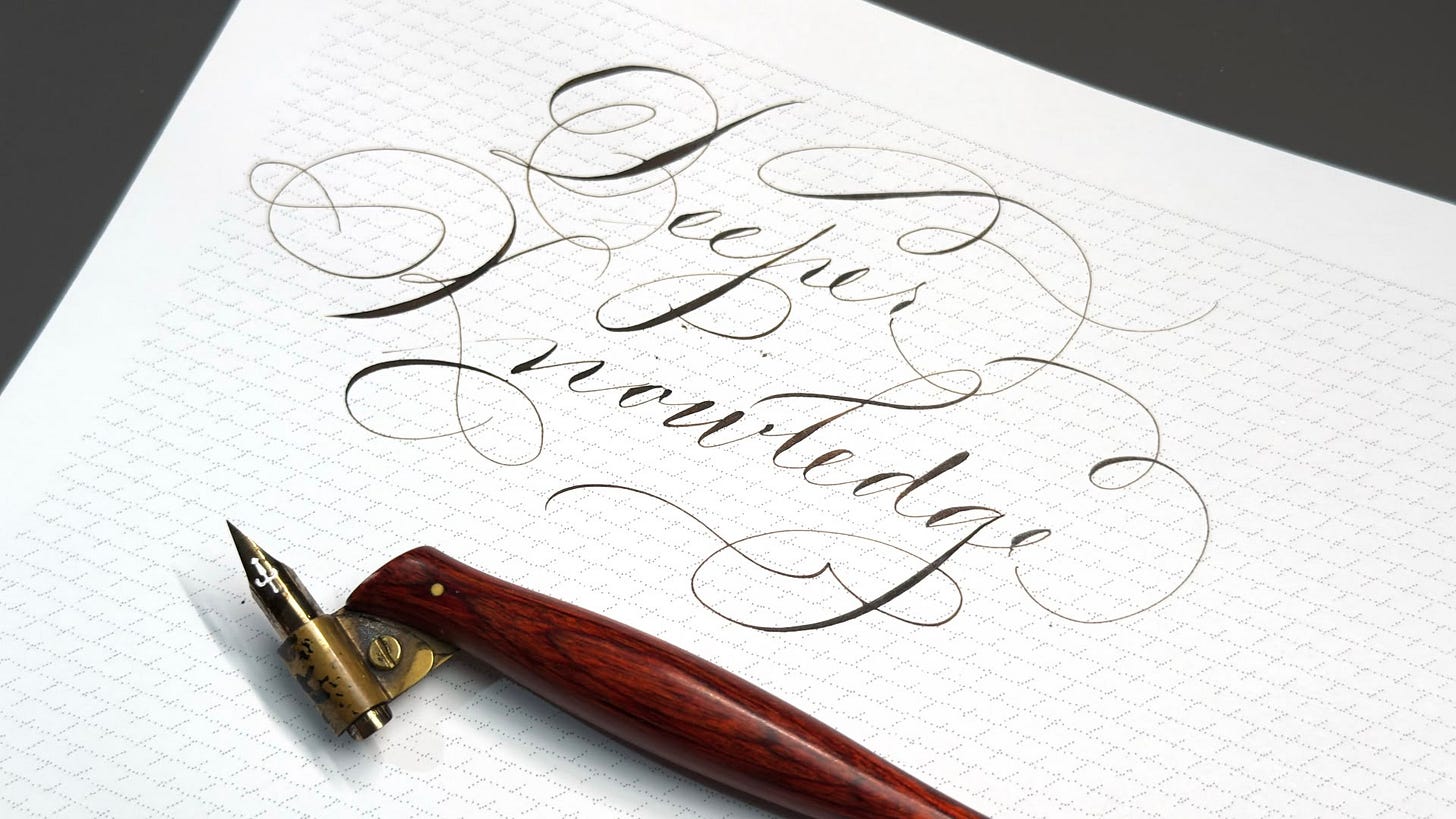 Deeper
Knowledge